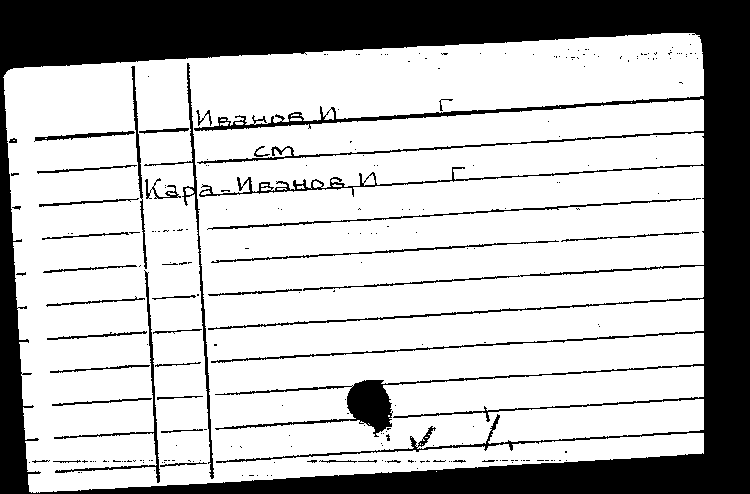 Иванов, И Г
см
Кара-Иванов, И Г